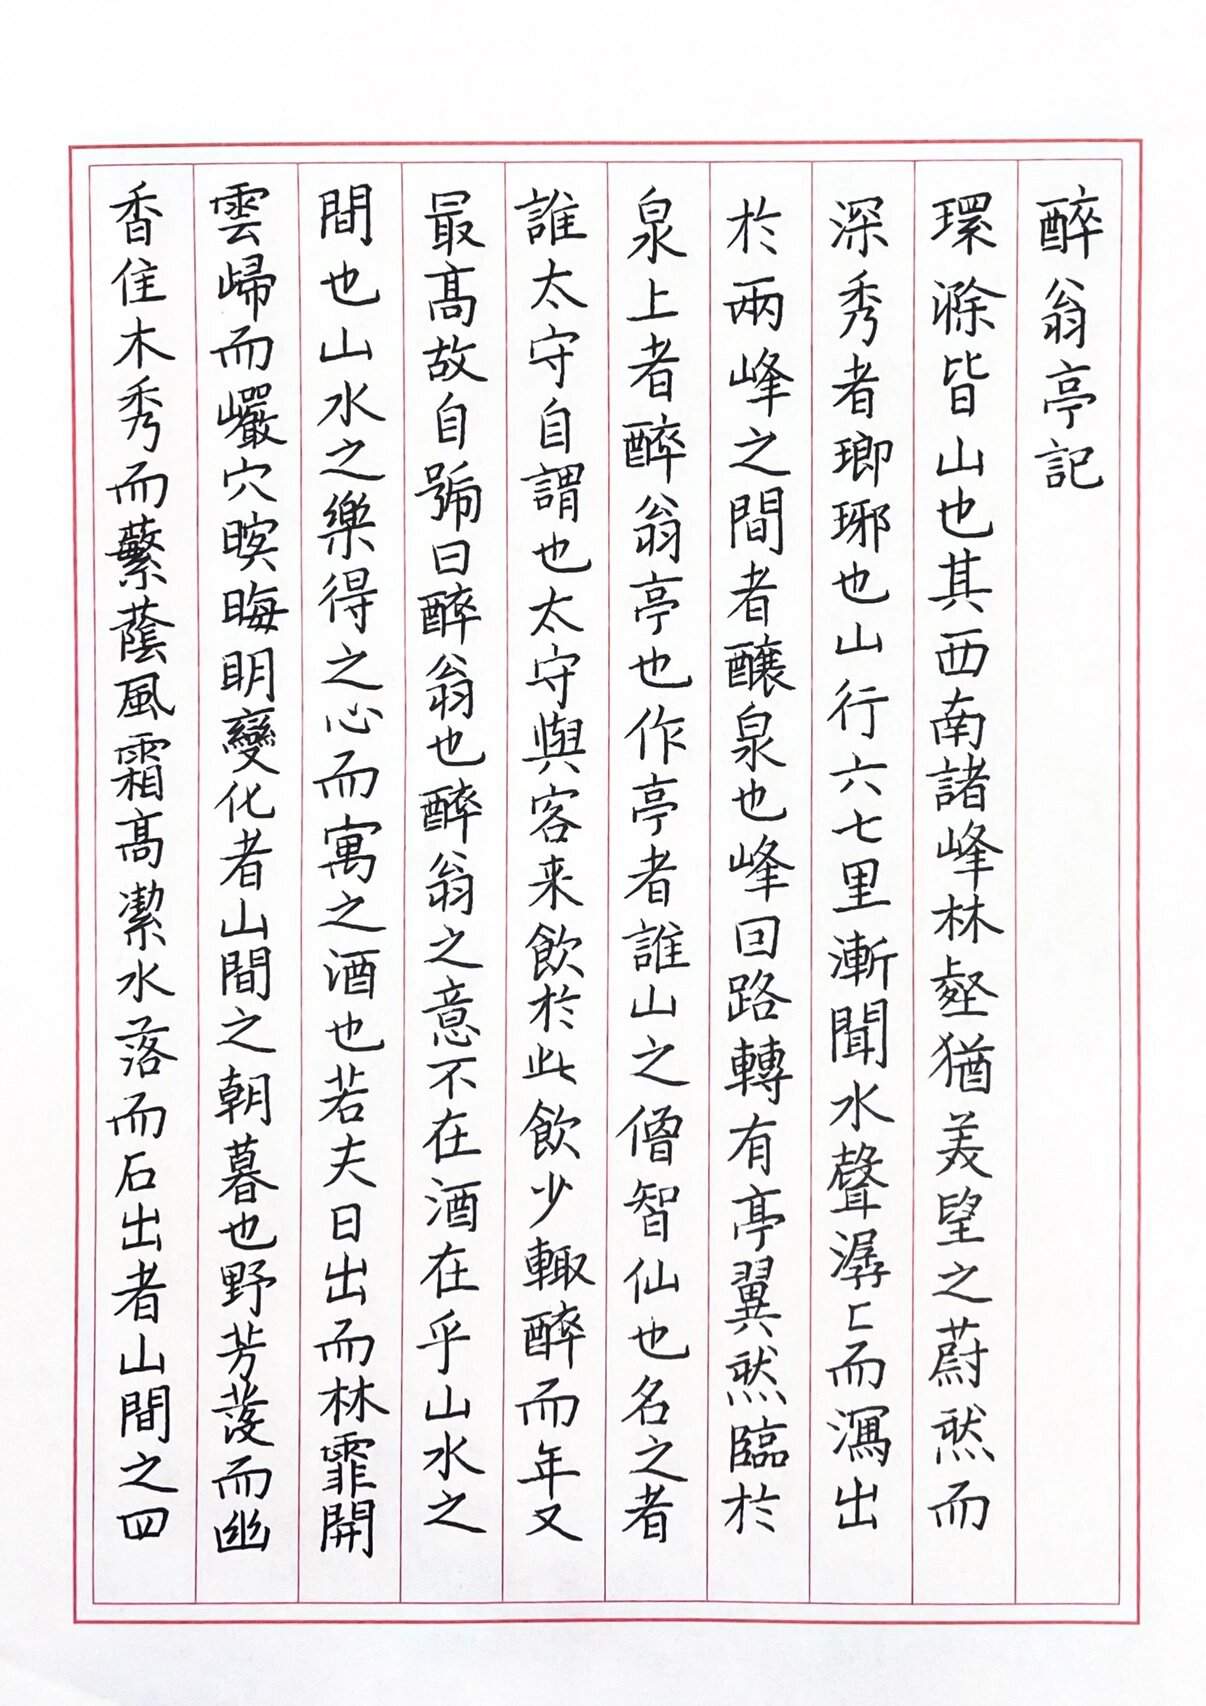 醉翁亭記
環滁皆山也其西南諸峰林壑猶美望之蔚然而
深秀者瑯琊也山行六七里漸聞水聲潺〻而瀉出
於兩峰之間者釀泉也峰回路轉有亭翼然臨於
泉上者醉翁亭也作亭者誰山之僧智仙也名之者
誰太守自謂也太守與客来飲於此飲少輒醉而年又
最高故自號曰醉翁也醉翁之意不在酒在乎山水之
間也山水之樂得之心而寓之酒也若夫日出而林霏開
雲歸而巖穴暝晦明變化者山間之朝暮也野芳發而幽
香佳木秀而蘩蔭風霜高潔水落而石出者山間之四